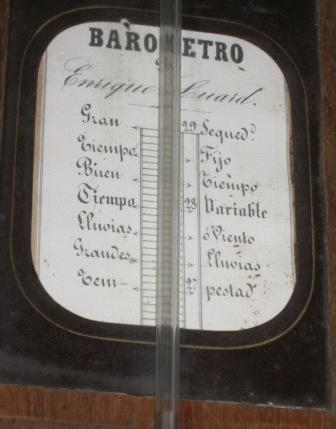 BAROMETRO
de
Enrique Luard.
Gran 29 Sequed.ᵈ
Tiempo Fijo
Buen Tiempo
Tiempo 28 Variable
Lluvias ó Viento
Grandes Lluvias
Tem- 27 pestad